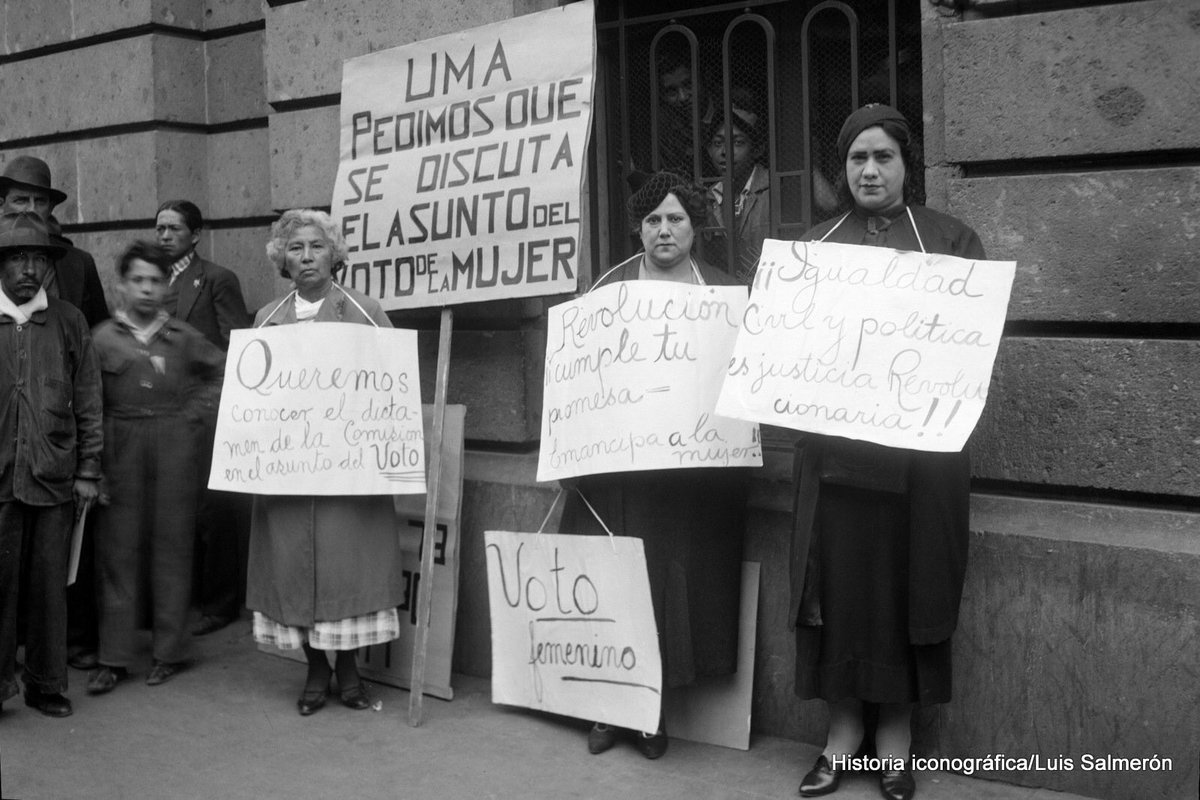 UMA
PEDIMOS QUE
SE DISCUTA
EL ASUNTO DEL
VOTO DE LA MUJER
Queremos
conocer el dicta-
men de la Comision
en el asunto del Voto
Revolución
¡¡cumple tu
promesa –
Emancipa a la
mujer!!
Voto
femenino
¡¡Igualdad
Civil y política
es justicia Revolu
cionaria!!
Historia iconográfica/Luis Salmerón